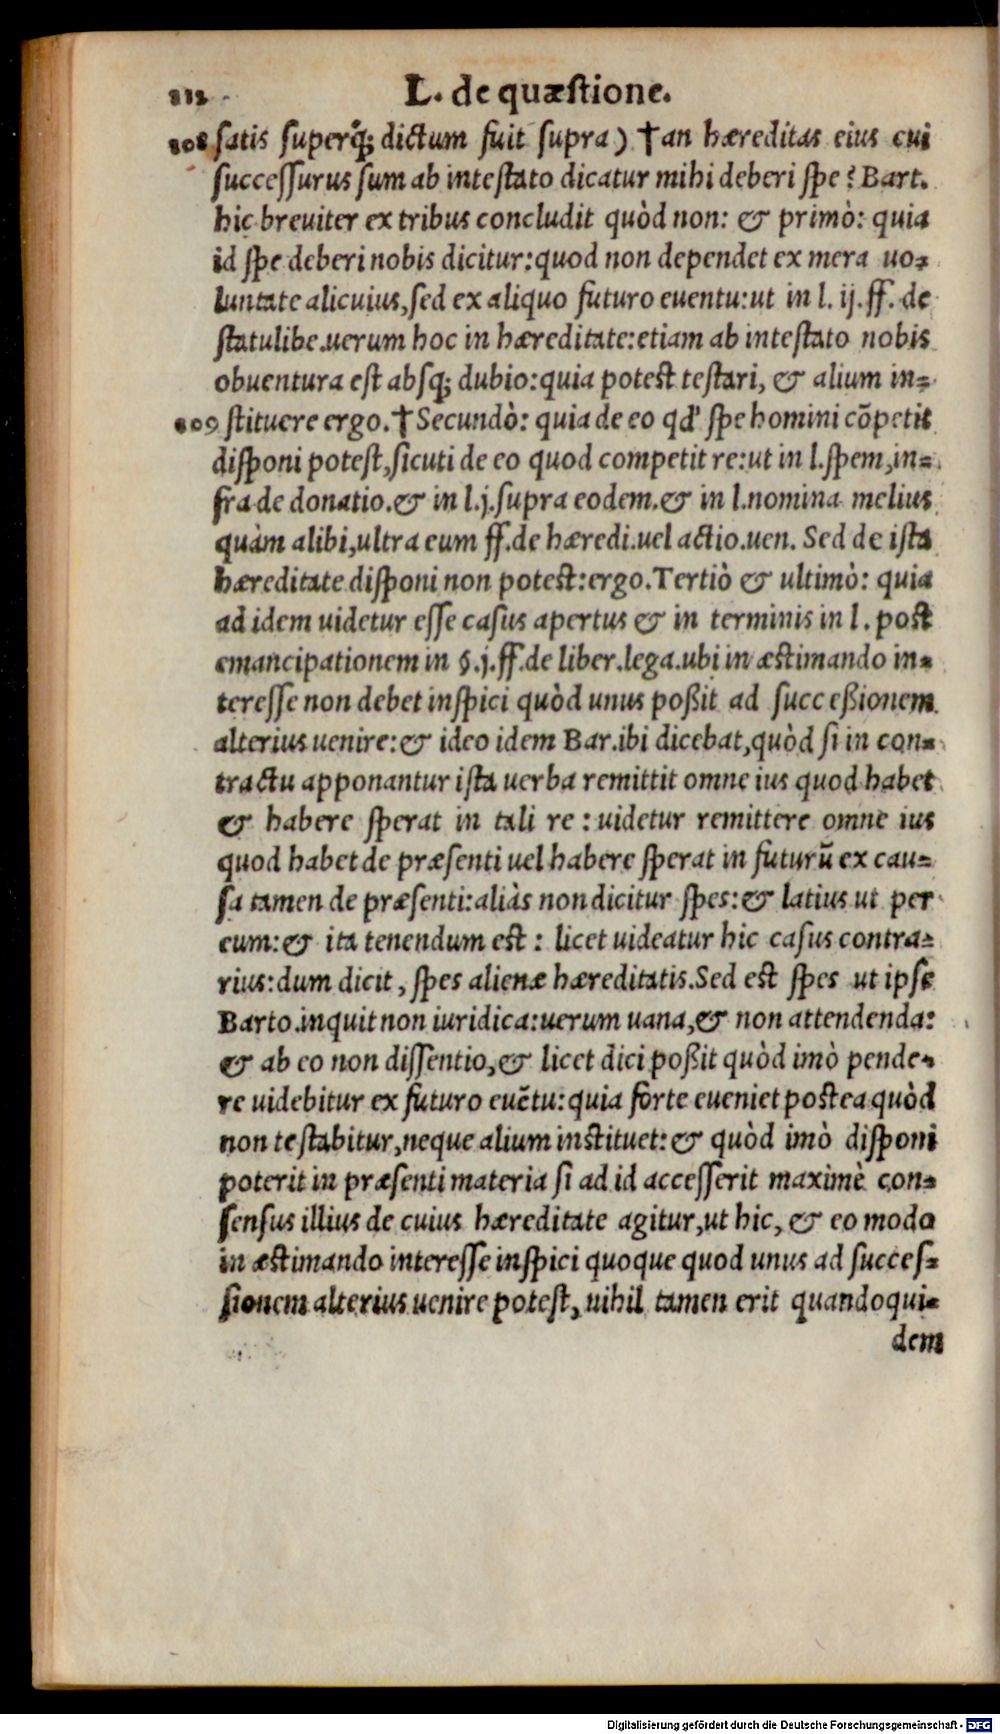 112 L. de quæstione.
108 satis superq́; dictum fuit supra) † an hæreditas eius cui
successurus sum ab intestato dicatur mihi deberi spe? Bart.
hic breuiter ex tribus concludit quòd non: & primò: quia
id spe deberi nobis dicitur: quod non dependet ex mera uo-
luntate alicuius, sed ex aliquo futuro euentu: ut in l. ij. ff. de
statulibe. uerum hoc in hæreditate: etiam ab intestato nobis
obuentura est absq; dubio: quia potest testari, & alium in-
109 stituere ergo. † Secundò: quia de eo qđ spe homini cōpetit
disponi potest, sicuti de eo quod competit re: ut in l. spem, in-
fra de donatio. & in l. j. supra eodem. & in l. nomina melius
quàm alibi, ultra eum ff. de hæredi. uel actio. uen. Sed de ista
hæreditate disponi non potest: ergo. Tertiò & ultimò: quia
ad idem uidetur esse casus apertus & in terminis in l. post
emancipationem in §. j. ff. de liber. lega. ubi in æstimando in-
teresse non debet inspici quòd unus poßit ad succeßionem
alterius uenire: & ideo idem Bar. ibi dicebat, quòd si in con-
tractu apponantur ista uerba remittit omne ius quod habet
& habere sperat in tali re: uidetur remittere omne ius
quod habet de præsenti uel habere sperat in futurū ex cau-
sa tamen de præsenti: aliàs non dicitur spes: & latius ut per
eum: & ita tenendum est: licet uideatur hic casus contra-
rius: dum dicit, spes alienæ hæreditatis. Sed est spes ut ipse
Barto. inquit non iuridica: uerum uana, & non attendenda:
& ab eo non dissentio, & licet dici poßit quòd imò pende-
re uidebitur ex futuro euētu: quia forte eueniet postea quòd
non testabitur, neque alium instituet: & quòd imò disponi
poterit in præsenti materia si ad id accesserit maximè con-
sensus illius de cuius hæreditate agitur, ut hic, & eo modo
in æstimando interesse inspici quoque quod unus ad succes-
sionem alterius uenire potest, nihil tamen erit quandoqui-
dem
Digitalisierung gefördert durch die Deutsche Forschungsgemeinschaft - DFG